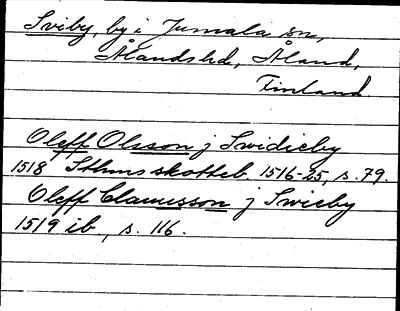 Sviby, by i Jumala sn,
Ålands hd, Åland,
Finland.
Oleff Olsson j Swidieby
1518 Sthms skotteb. 1516-25, s. 79.
Oleff Clauusson j Swieby
1519 ib., s. 116.